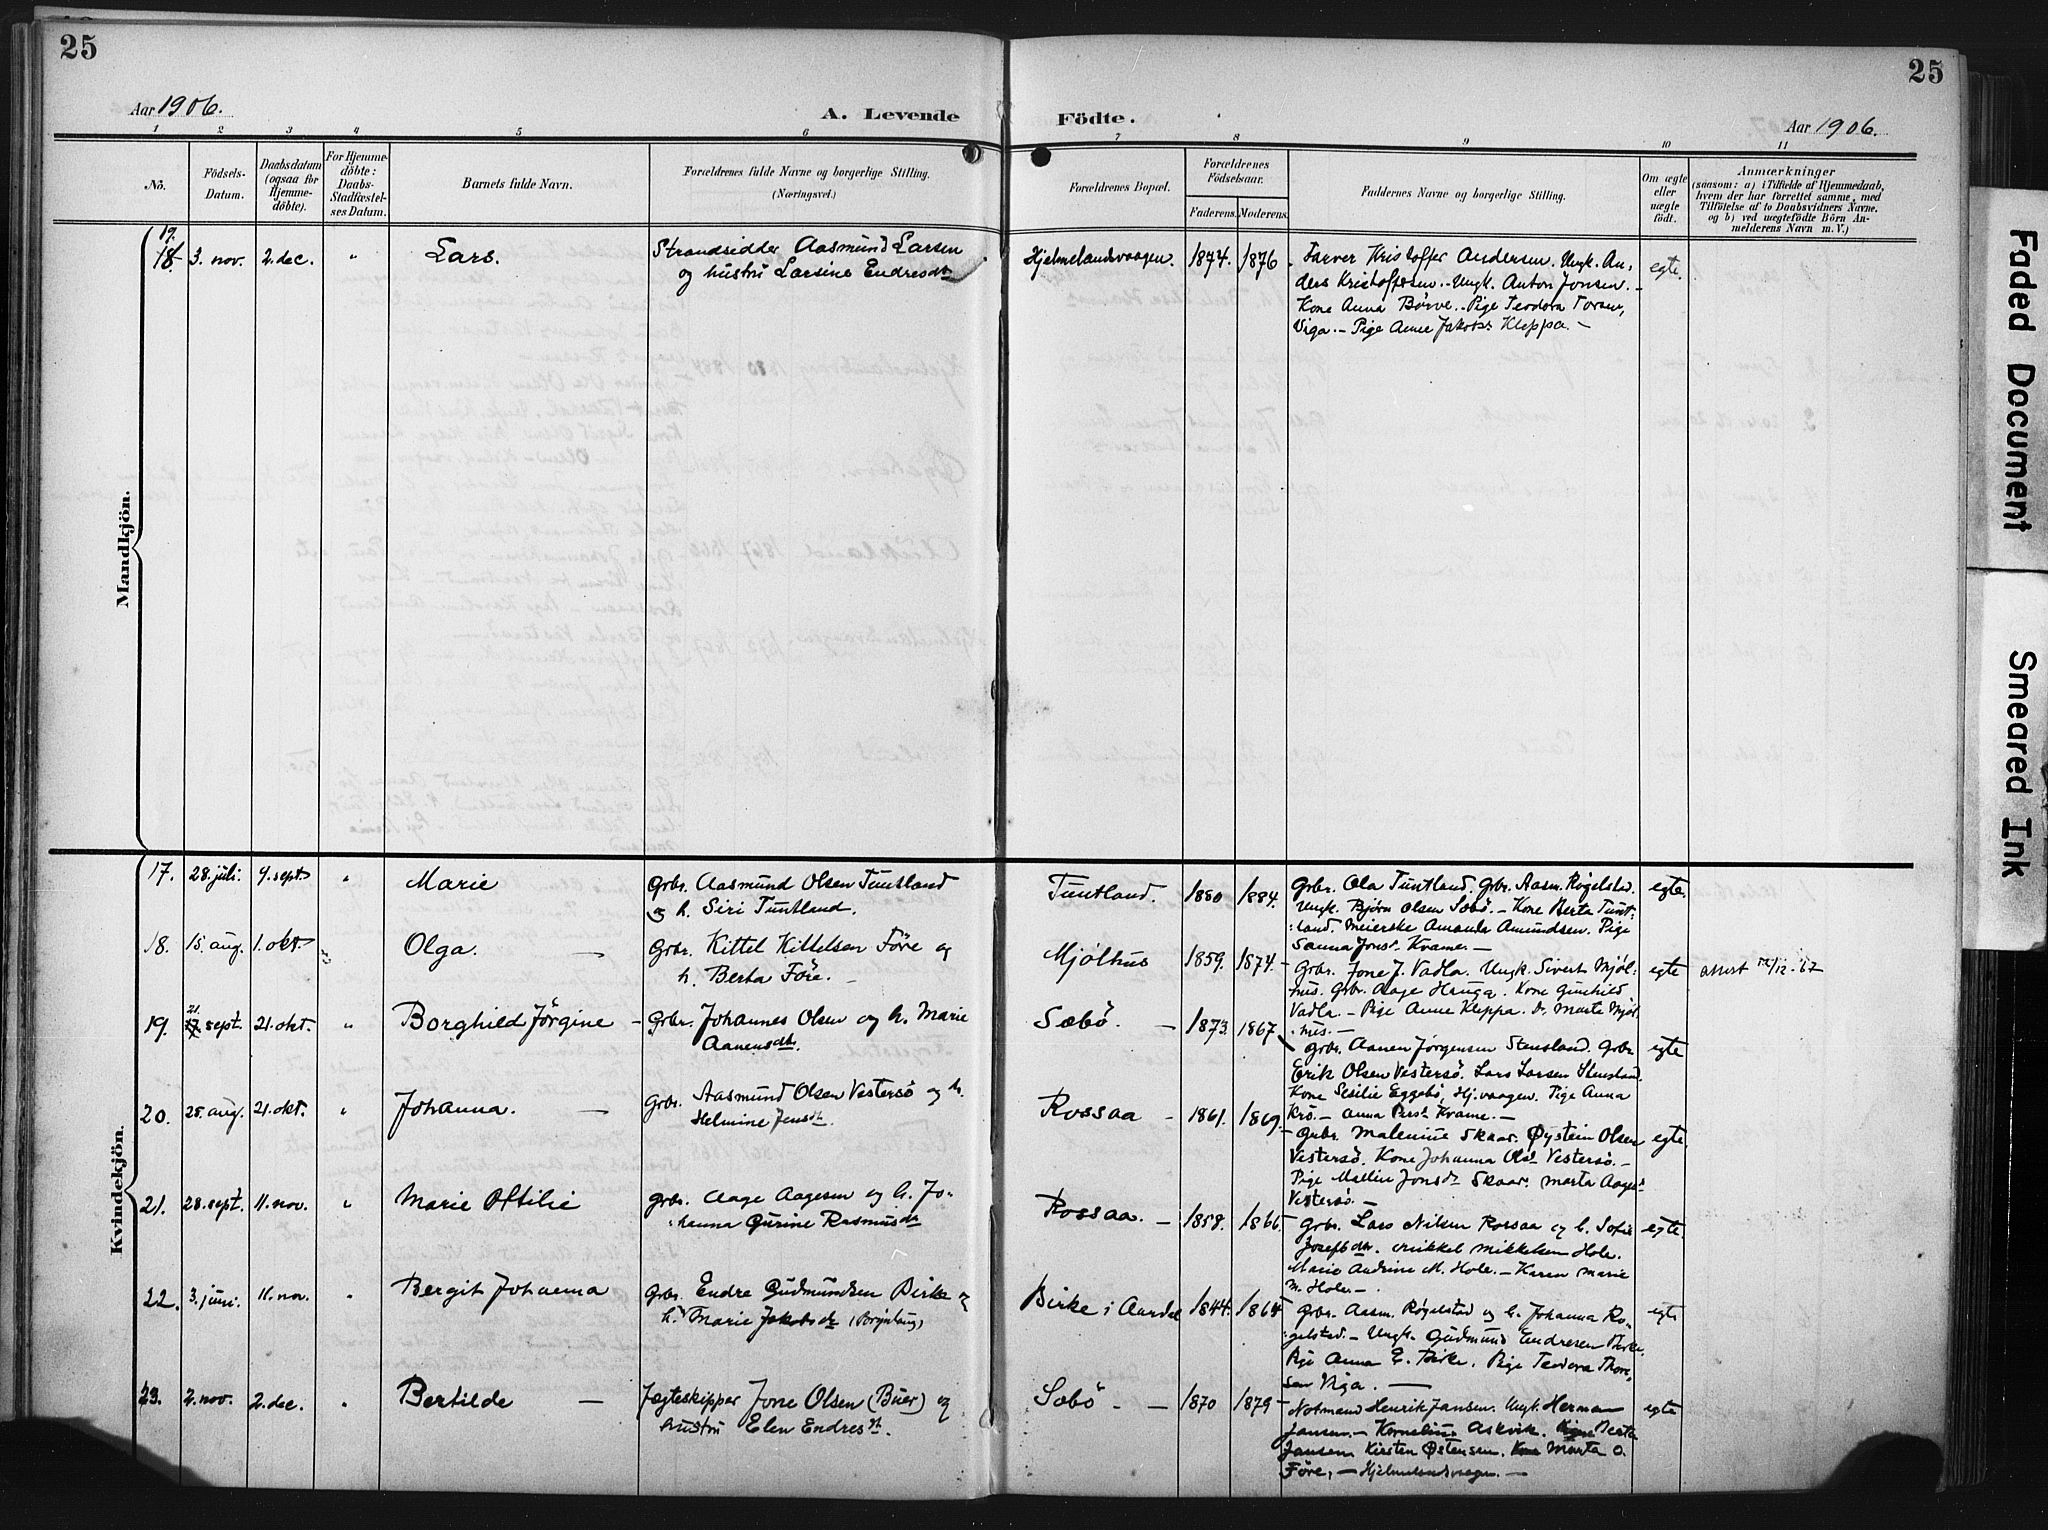 25
25
Aar 1906.
A. Levende
Födte.
Aar 1906.
1 2 3 4 5 6 7 8 9 10 11
No.
Födsels-
Datum.
Daabsdatum
(ogsaa for
Hjemme-
döbte).
For Hjemme-
döbte:
Daabs-
Stadfæstel-
ses Datum.
Barnets fulde Navn.
Forældrenes fulde Navne og borgerlige Stilling.
(Næringsvei.)
Forældrenes Bopæl.
Forældrenes
Födselsaar.
Faderens.
Moderens.
Faddernes Navne og borgerlige Stilling.
Om ægte
eller
uægte
födt.
Anmærkninger
(saasom: a) i Tilfælde af Hjemmedaab,
hvem der har forrettet samme, med
Tilföielse af to Daabsvidners Navne,
og b) ved uægtefödte Börn An-
melderens Navn m. V.)
Mandkjön.
19.
18. 3. nov. 2. dec. " Lars.
Strandsidder Aasmund Larsen
og hustru Larsine Endresdtr
Hjelmelandsvaagen. 1874. 1876
Farver Kristoffer Andersen. Ungk. An-
ders Kristoffersen. - Ungk. Anton Jonsen. -
Kone Anna Børve. - Pige Teodora Torsen,
Viga. - Pige Anne Jakobs Kleppa. -
egte.
Kvindekjön.
17. 28. juli. 9. sept. " Marie
Grbr. Aasmund Olsen Tuntland
og h. Siri Tuntland.
Tuntland. 1880 1884.
Grbr. Ola Tuntland. Grbr. Aasm. Røgelstad.
Ungk. Bjørn Olsen Sæbö. - Kone Berta Tunt-
land. Meierske Amanda Amundsen. Pige
Sanna Jonsd. Kvame. -
egte.
18. 15. aug. 1. okt. " Olga.
Grbr. Kittel Kittelsen Före og
h. Berta Före. -
Mjølhus 1859. 1874. -
Grbr. Jone J. Vadla. Ungk. Sivert Mjöl-
hus. Grbr. Aage Hauga. Kone Gunhild
Vadla. - Pige Anne Kleppa. Do. Marta Mjöl-
hus. -
egte
19. 21. sept. 21. okt. " Borghild Jörgine -
Grbr. Johannes Olsen og h. Marie
Aanensdtr.
Sæbö. - 1873. 1867
Grbr. Aanen Jørgensen Stensland. Grbr
Erik Olsen Vestersö. Lars Larsen Stensland.
Kone Sesilie Eggebö, Hj.vaagen. Pige Anna
Krö. - Anna Persd. Kvame. -
egte
20. 25. aug. 21. okt. " Johanna. -
Grbr. Aasmund Olsen Vestersö og h.
Helmine Jensdtr.
Rossaa - 1861. 1869. -
Grbr. Malenius Skaar. Øystein Olsen
Vestersö. Kone Johanna Olsd. Vestersö. -
Pige Malline Jonsdr. Skaar. Marta Aagesd.
Vestersö. -
egte.
21. 28. sept. 11. nov. " Marie Ottilie
Grbr. Aage Aagesen og h. Jo-
hanna Gurine Rasmusdtr
Rossaa. - 1858. 1866. -
Grbr. Lars Nilsen Rossaa og h. Sofie
Josefsdtr. Mikkel Mikkelsen Hole.
Marie Andrine M. Hole. - Karen Marie
M. Hole. -
egte.
22. 3. juni. 11. nov. " Bergit Johanna
Grbr. Endre Gudmundsen Birke og
h. Marie Jakobsdtr
Birke i Aardal 1844. 1864.
Grbr. Aasm. Røgelstad og h. Johanna Rö-
gelstad. - Ungk. Gudmund Endresen Birke,
Pige Anna E. Birke. Pige Teodora Thor-
sen Viga. -
egte
23. 2. nov. 2. dec. " Bertilde -
Jægteskipper Jone Olsen (Buer) og
hustru Elen Endresdt.
Sæbö. - 1870 1879 -
Notmand Henrik Jansen. Ungk. Herman
Jansen. - Kornelius Askvik. Berta
Jansen Kirsten Østensen. Marta O.
Före, - Hjelmelandsvaagen. -
egte
Faded Document
Smeared Ink